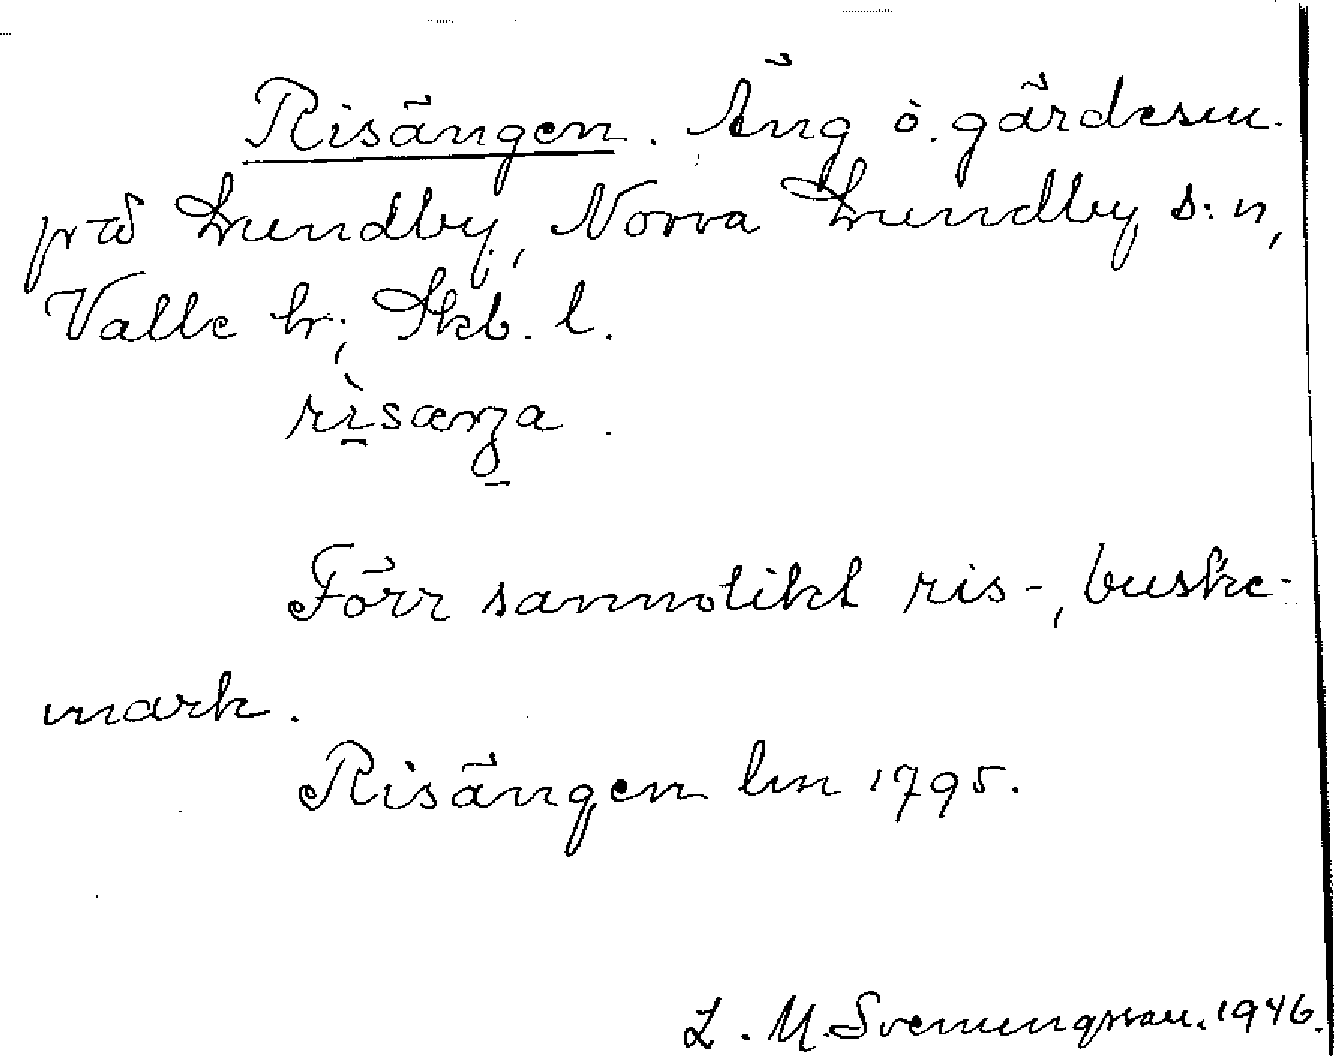 Risängen. Äng ö. gärdesm.
på Lundby, Norra Lundby s:n,
Valle hr; Skb. l.
rìsæŋa.
Förr sannolikt ris-, buske-
mark.
Risängen lm 1795.
L. M. Svenungsson. 1946.